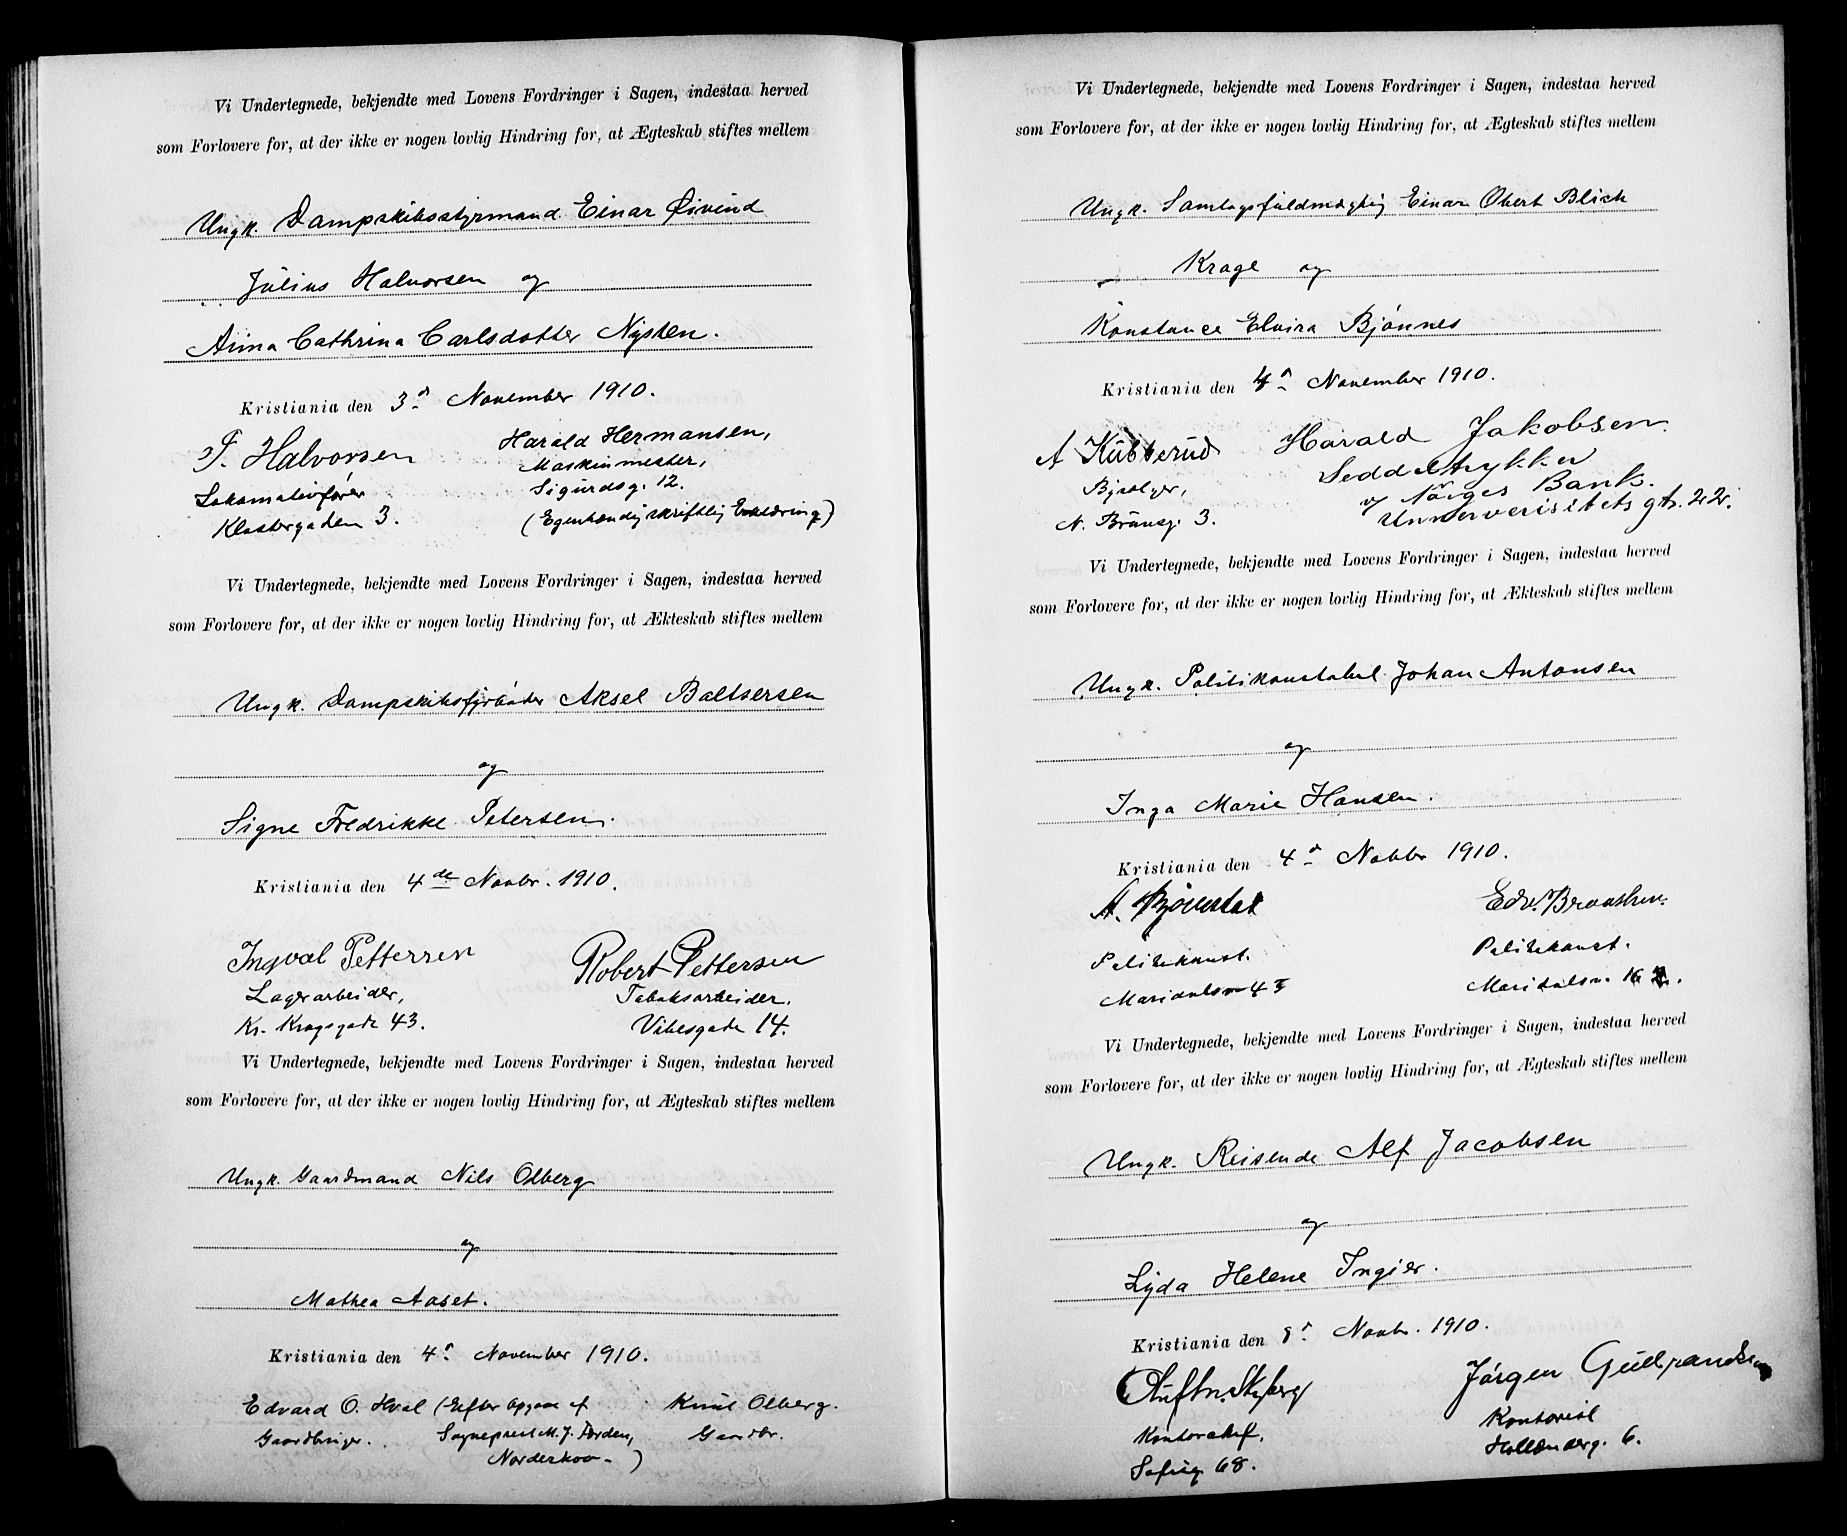 Vi Undertegnede, bekjendte med Lovens Fordringer i Sagen, indestaa herved
som Forlovere for, at der ikke er nogen lovlig Hindring for, at Ægteskab stiftes mellem
Ungk. Dampskibsstyrmand Einar Øivind
Julius Halvorsen og
Aima Cathrina Carlsdotter Nysten.
Kristiania den 3d November 1910.
T. Halvorsen
Lokomativfører
Klostergaden 3.
Harald Hermansen,
Maskinmester,
Sigurdsg. 12.
(Egenhændig skriftlig Erklæring)
Vi Undertegnede, bekjendte med Lovens Fordringer i Sagen, indestaa herved
som Forlovere for, at der ikke er nogen lovlig Hindring for, at Ækteskab stiftes mellem
Ungk. Dampskibsfyrbøder Aksel Baltsersen
og
Signe Fredrikke Petersen.
Kristiania den 4de Novbr. 1910.
Ingval Pettersen
Lagerarbeider,
Kr. Krogsgade 43.
Robert Pettersen
Tobaksarbeider,
Vibesgade 14.
Vi Undertegnede, bekjendte med Lovens Fordringer i Sagen, indestaa herved
som Forlovere for, at der ikke er nogen lovlig Hindring for, at Ægteskab stiftes mellem
Ungk. Gaardmand Nils Olberg
og
Mathea Aaset.
Kristiania den 4d November 1910.
Edvard O. Hval
Gaardbruger.
(Efter Opgave af
Sogneprest M. J. Færden,
Norderhov.)
Knut Olberg.
Gaardbr.
Vi Undertegnede, bekjendte med Lovens Fordringer i Sagen, indestaa herved
som Forlovere for, at der ikke er nogen lovlig Hindring for, at Ægteskab stiftes mellem
Ungk. Samlagsfuldmægtig Einar Obert Blich
Krage og
Konstance Elvira Bjønnes
Kristiania den 4d November 1910.
A Kubberud
Byselger,
N. Brunsg. 3.
Harald Jakobsen.
Seddeltrykker
v/ Norges Bank.
Unnerverisitets gt. 22.
Vi Undertegnede, bekjendte med Lovens Fordringer i Sagen, indestaa herved
som Forlovere for, at der ikke er nogen lovlig Hindring for, at Ækteskab stiftes mellem
Ungk. Politikonstabel Johan Antonsen
og
Inga Marie Hansen.
Kristiania den 4d Novbr 1910.
A. Bjørnstad
Politikonst.
Maridalsv 43
Edv. Braathen.
Politikonst.
Maridalsv. 16
Vi Undertegnede, bekjendte med Lovens Fordringer i Sagen, indestaa herved
som Forlovere for, at der ikke er nogen lovlig Hindring for, at Ægteskab stiftes mellem
Ungk. Reisende Alf Jacobsen
og
Lyda Helene Ingier.
Kristiania den 8d Novbr. 1910.
Kontorchef.
Sofieg 68.
Jørgen Gulbrandsen
Kontorist
Hollænderg. 6.